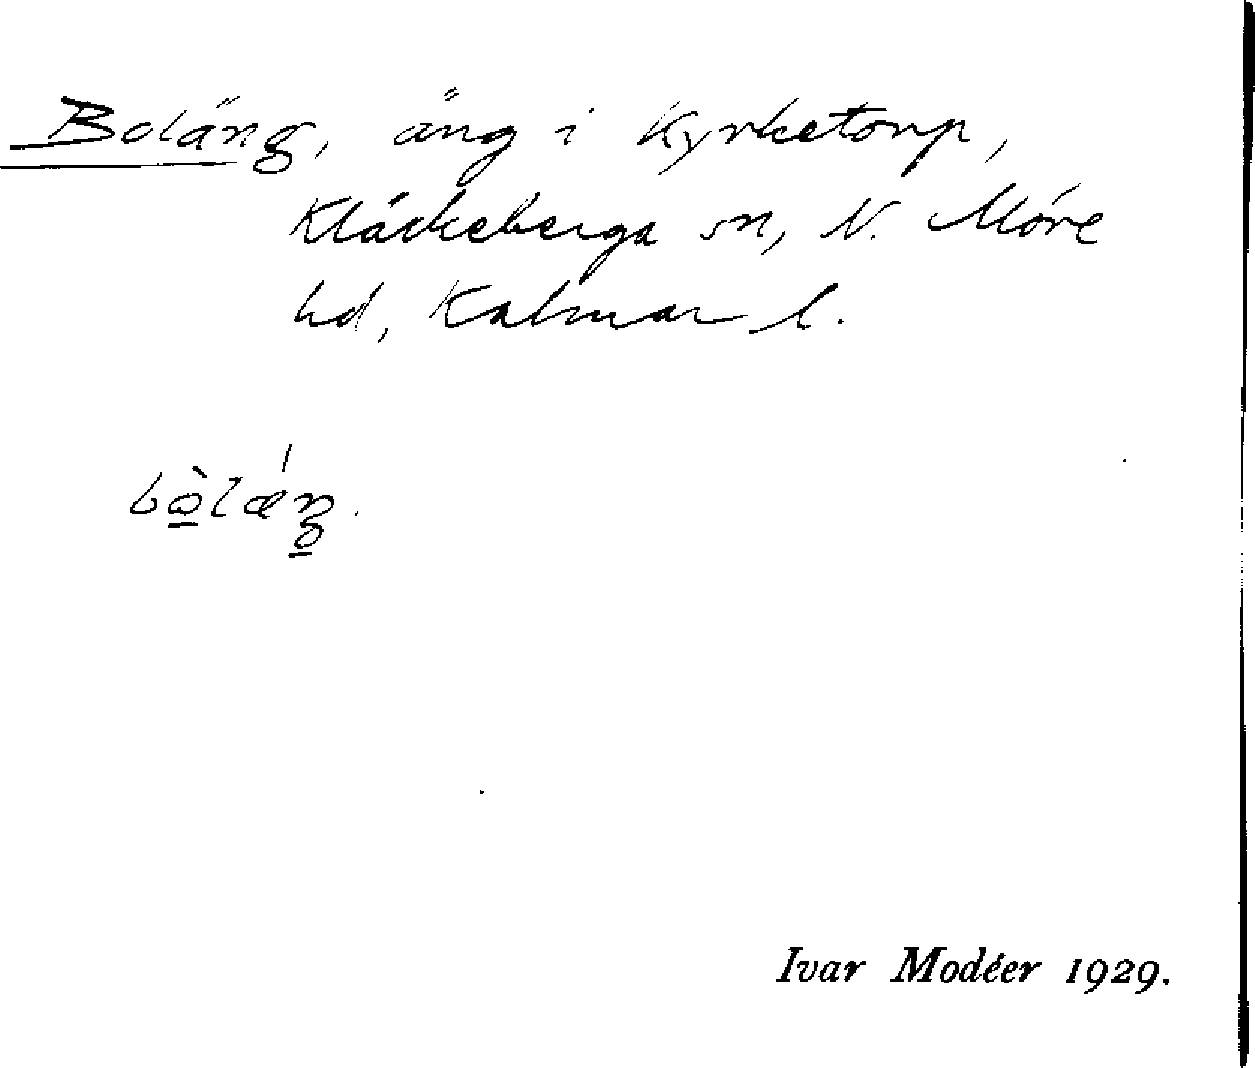 Boläng, äng i Kyrketorp,
Kläckeberga sn, N. Möre
hd, Kalmar l.
bò̱lǽŋ̱.
Ivar Modéer 1929.